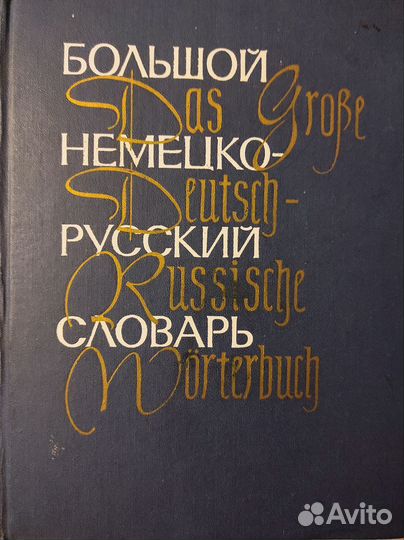 БОЛЬШОЙ
Das Große
НЕМЕЦКО-
Deutsch-
РУССКИЙ
Russische
СЛОВАРЬ
Wörterbuch
Avito